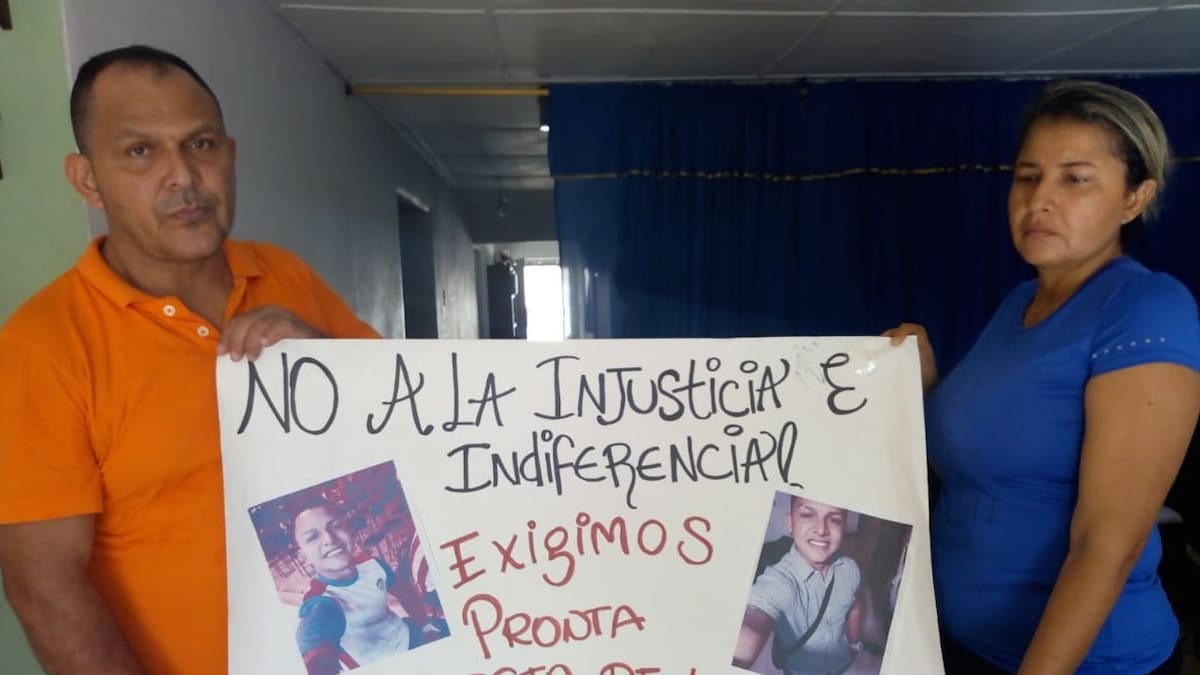 NO A LA INJUSTICIA E
INDIFERENCIA!
EXIGIMOS
PRONTA